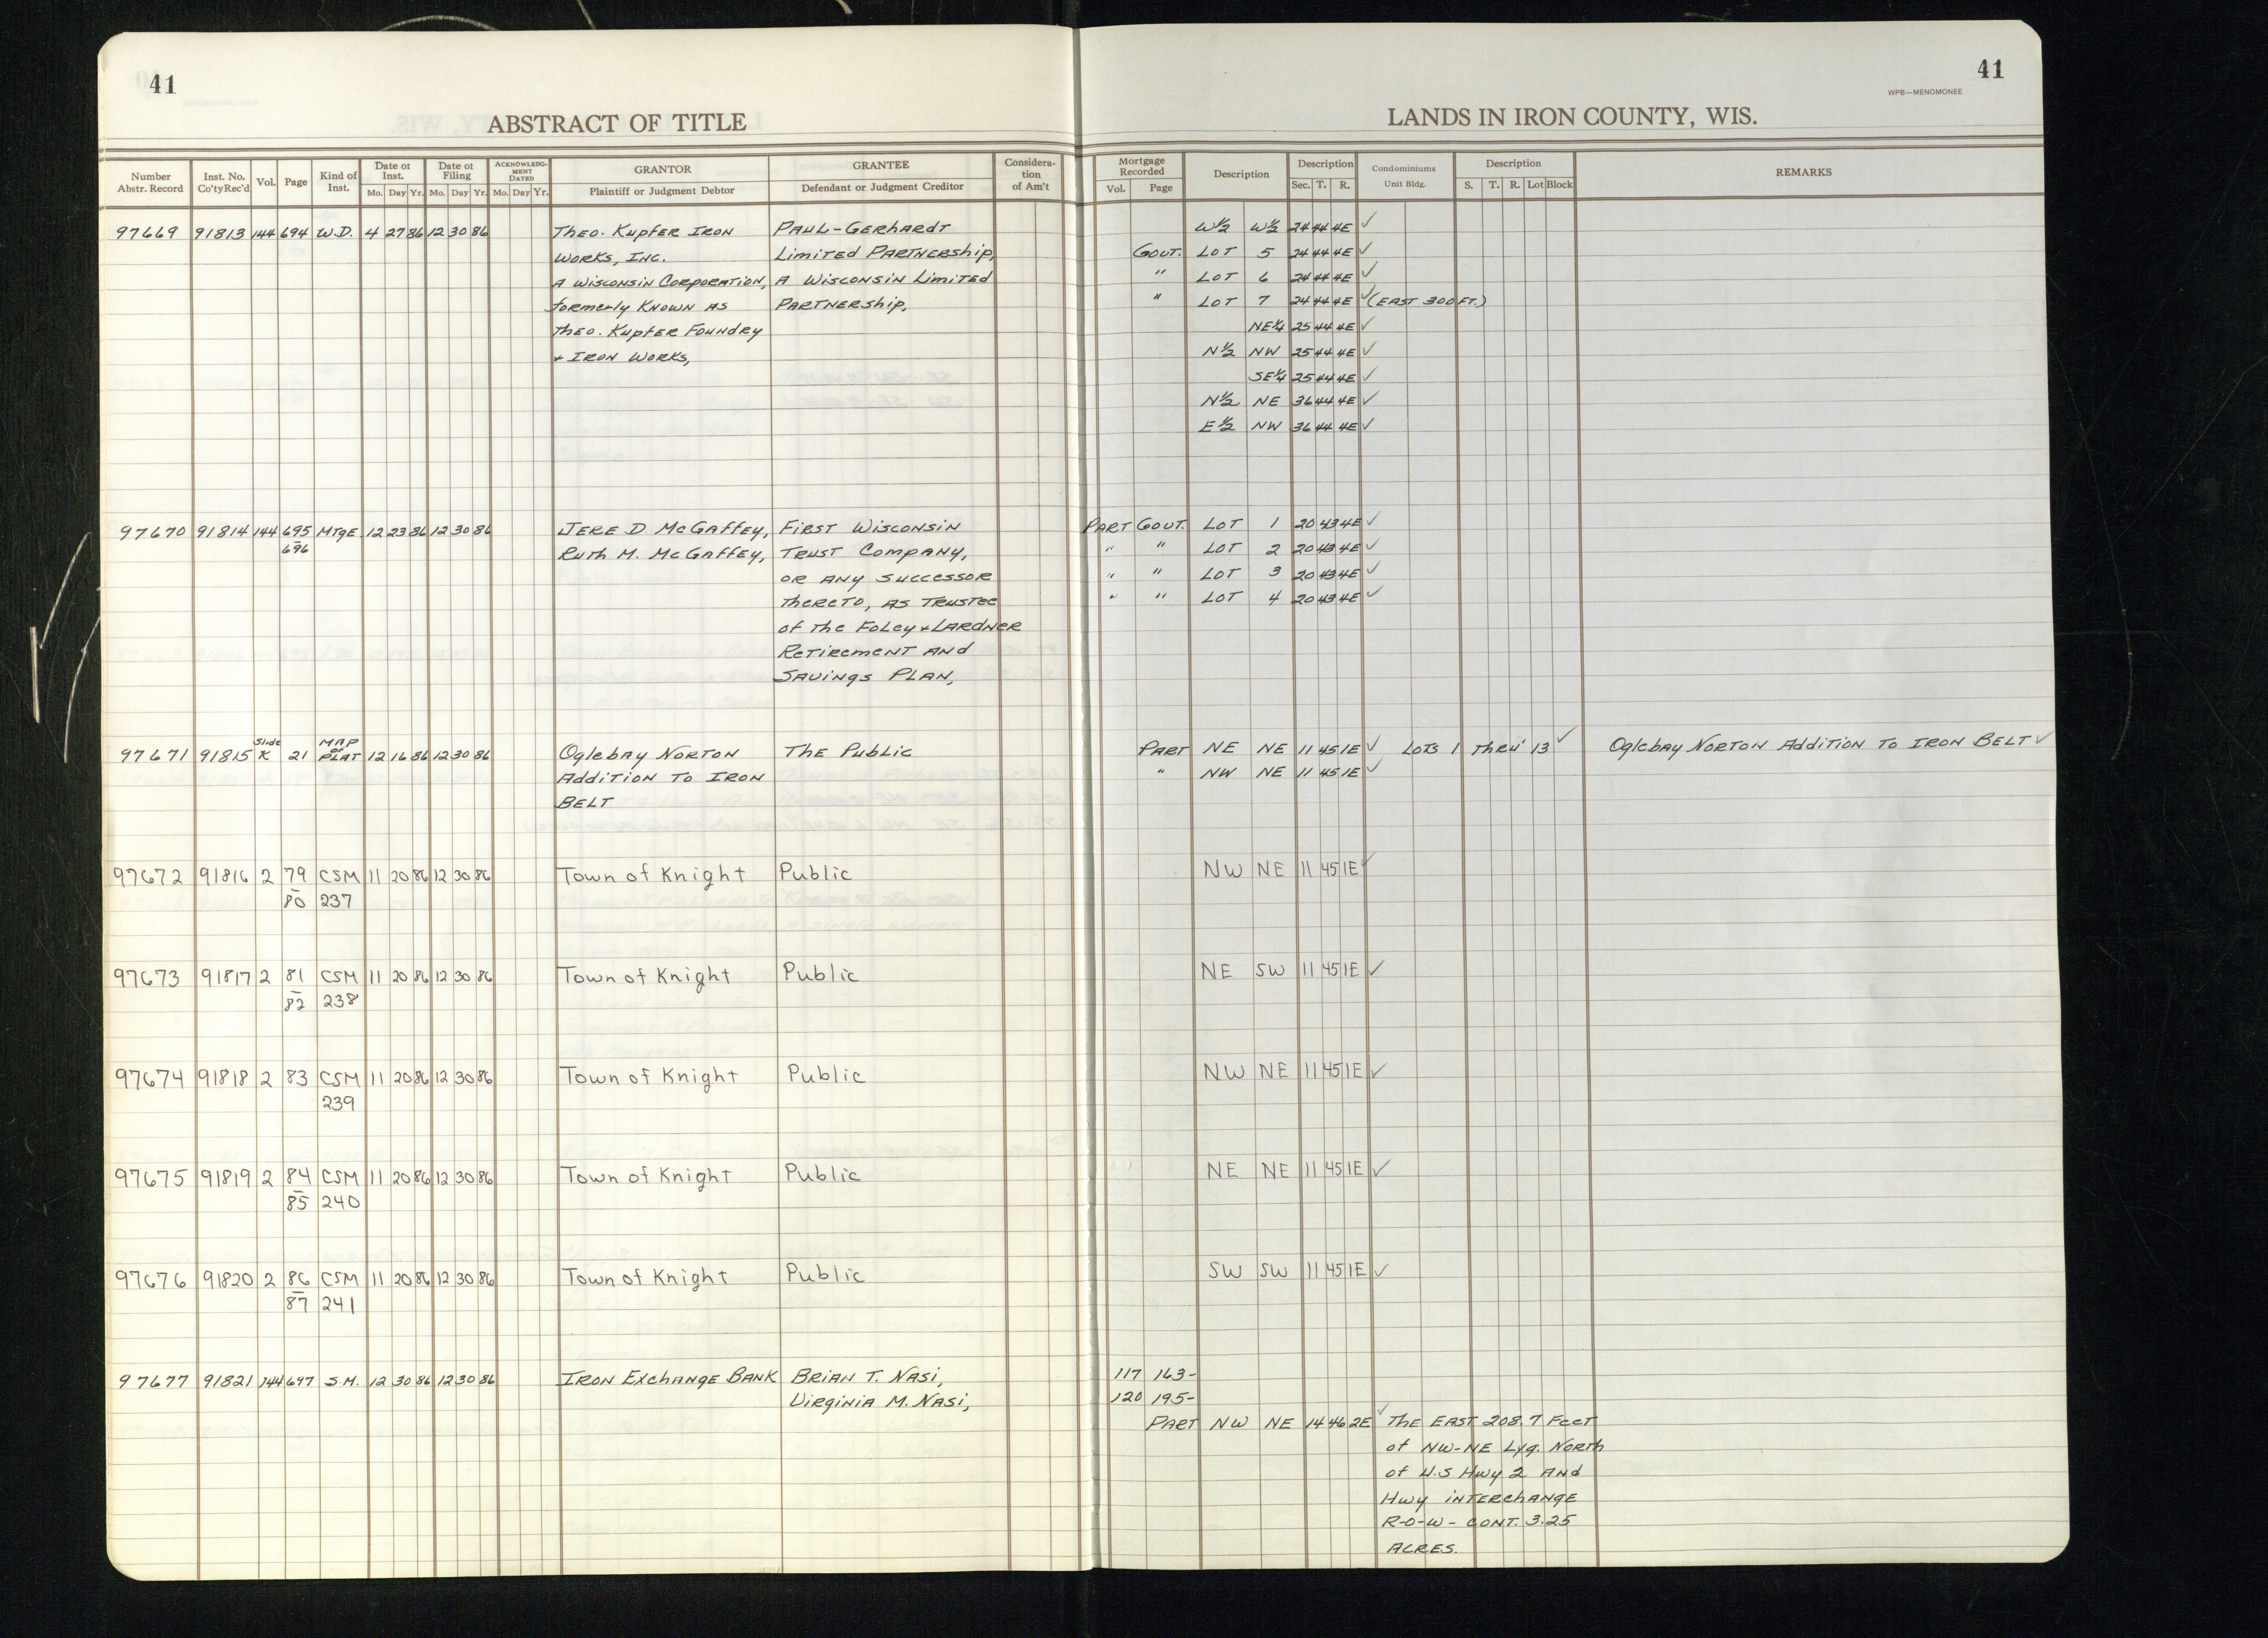 41
41
WPB—MENOMONEE
ABSTRACT OF TITLE
LANDS IN IRON COUNTY, WIS.
Number Abstr. Record
Inst. No. Co'ty Rec'd
Vol.
Page
Kind of Inst.
Date of Inst.
Mo. Day Yr.
Date of Filing
Mo. Day Yr.
ACKNOWLEDGMENT DATED
Mo. Day Yr.
GRANTOR
Plaintiff or Judgment Debtor
GRANTEE
Defendant or Judgment Creditor
Consideration of Am't
Mortgage Recorded
Vol. Page
Description
Description
Sec. T. R.
Condominiums
Unit Bldg.
Description
S. T. R. Lot Block
REMARKS
97669 91813 144 694 W.D. 4 27 86 12 30 86 Theo. Kupfer Iron Paul-Gerhardt W½ W½ 24 44 4E ✓
Works, Inc. Limited Partnership, Govt. Lot 5 24 44 4E ✓
A Wisconsin Corporation, A Wisconsin Limited " Lot 6 24 44 4E ✓
formerly Known as Partnership, " Lot 7 24 44 4E ✓ (East 300 FT.)
Theo. Kupfer Foundry NE¼ 25 44 4E ✓
+ Iron Works, N½ NW 25 44 4E ✓
SE¼ 25 44 4E ✓
N½ NE 36 44 4E ✓
E½ NW 36 44 4E ✓
97670 91814 144 695 Mtge 12 23 86 12 30 86 Jere D McGaffey, First Wisconsin Part Govt. Lot 1 20 43 4E ✓
– 696 Ruth M. McGaffey, Trust Company, " " Lot 2 20 43 4E ✓
or any successor " " Lot 3 20 43 4E ✓
thereto, as Trustee " " Lot 4 20 43 4E ✓
of the Foley + Lardner
Retirement and
Savings Plan,
97671 91815 Slide K 21 Map or Plat 12 16 86 12 30 86 Oglebay Norton The Public Part NE NE 11 45 1E ✓ Lots 1 thru 13 ✓ Oglebay Norton Addition To Iron Belt ✓
Addition To Iron " NW NE 11 45 1E ✓
Belt
97672 91816 2 79 CSM 11 20 86 12 30 86 Town of Knight Public NW NE 11 45 1E ✓
– 80 237
97673 91817 2 81 CSM 11 20 86 12 30 86 Town of Knight Public NE SW 11 45 1E ✓
– 82 238
97674 91818 2 83 CSM 11 20 86 12 30 86 Town of Knight Public NW NE 11 45 1E ✓
239
97675 91819 2 84 CSM 11 20 86 12 30 86 Town of Knight Public NE NE 11 45 1E ✓
– 85 240
97676 91820 2 86 CSM 11 20 86 12 30 86 Town of Knight Public SW SW 11 45 1E ✓
– 87 241
97677 91821 144 697 S.M. 12 30 86 12 30 86 Iron Exchange Bank Brian T. Nasi, 117 163-
Virginia M. Nasi, 120 195-
Part NW NE 14 46 2E ✓ The East 208.7 Feet
of NW-NE Lyg. North
of U.S Hwy 2 and
Hwy interchange
R-O-W - cont. 3.25
Acres.